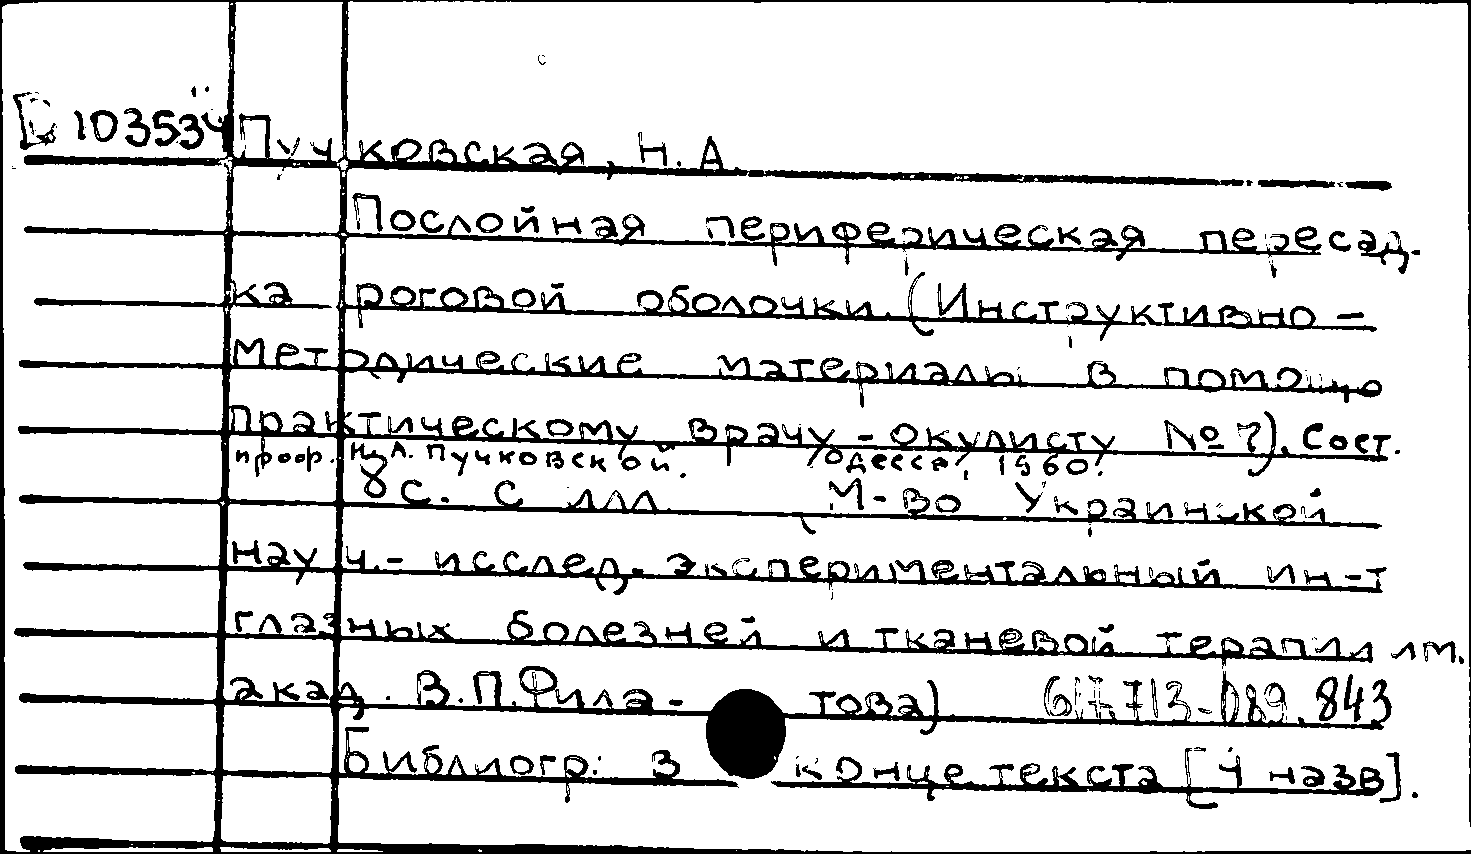 103534 Пучковская, Н.А.
Послойная периферическая пересад-
ка роговой оболочки. (Инструктивно-
методические материалы в помощь
практическому врачу-окулисту № 7). Сост.
проф. Н.А. Пучковской. Одесса, 1960.
8 с. с илл. (М-во Украинской
науч.-исслед. экспериментальный ин-т
глазных болезней и тканевой терапии им.
акад. В.П. Фила- това) 617.713-089.843
Библиогр: в конце текста [4 назв].